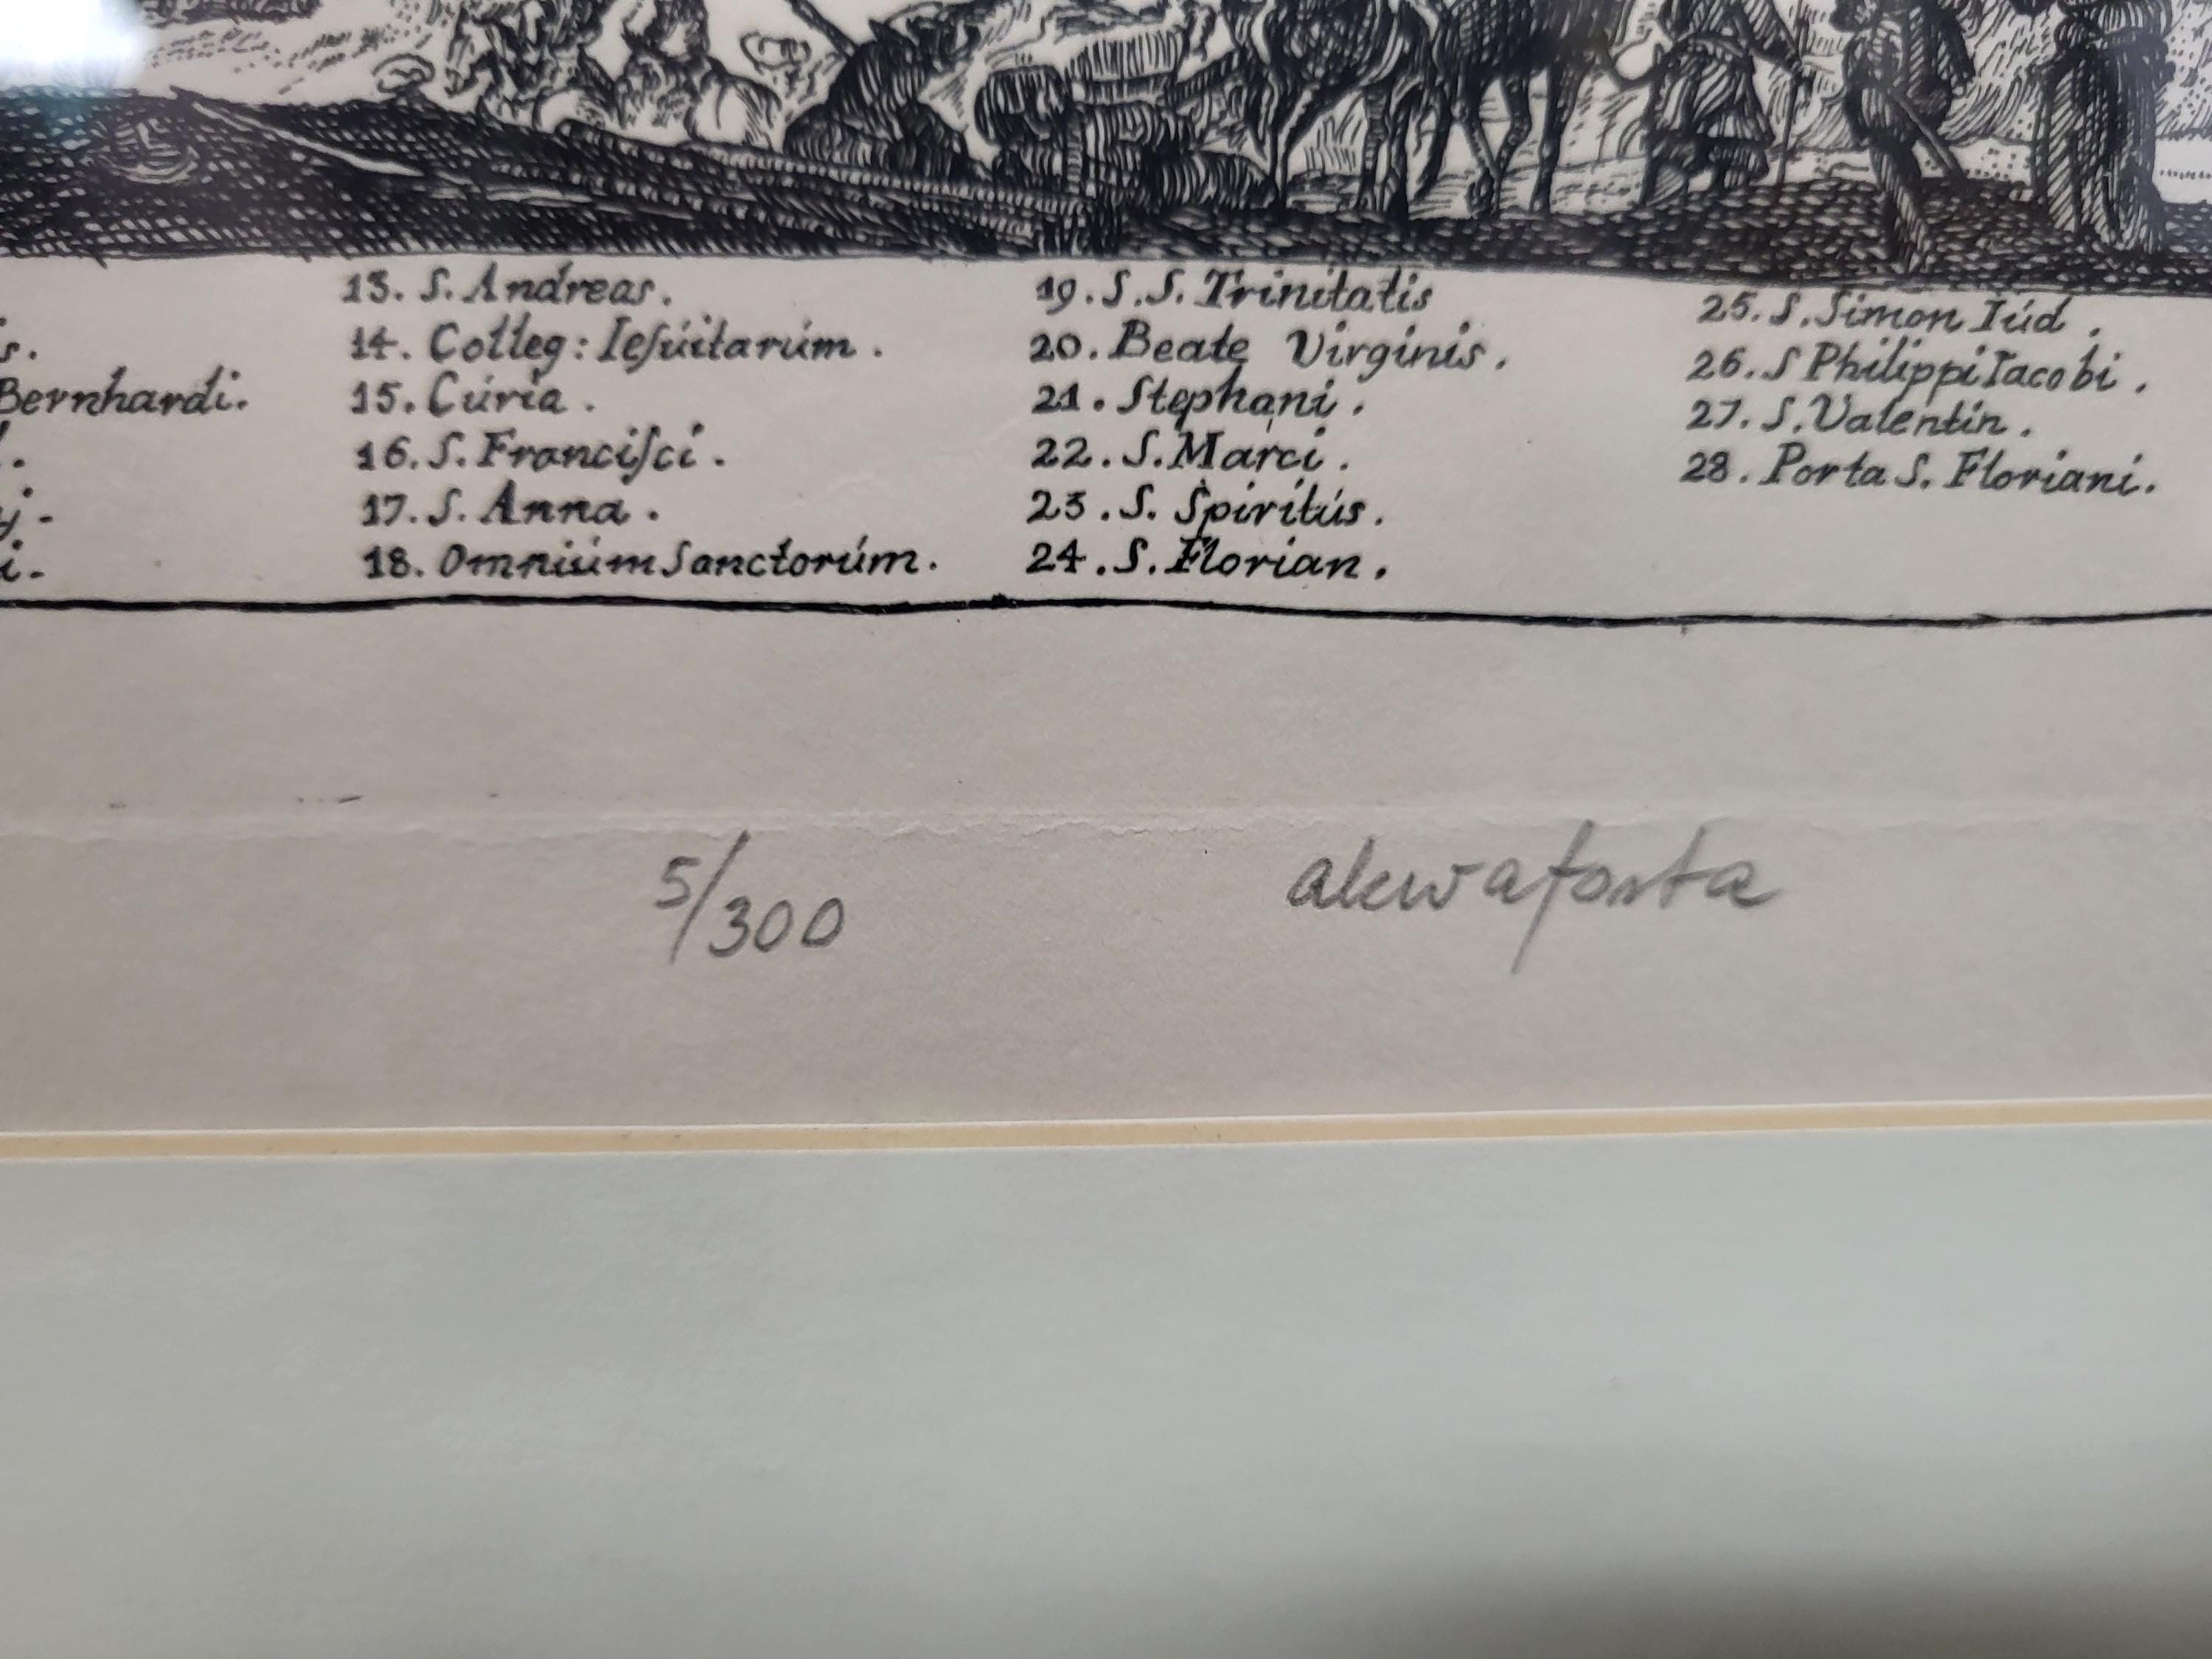 s.
Bernhardi.
13. S. Andreas.
14. Colleg: Ieſúitarúm.
15. Cúria.
16. S. Franciſci.
17. S. Anna.
18. Omniúm Sanctorúm.
19. S. S. Trinitatis
20. Beate Virginis.
21. Stephani.
22. S. Marci.
23. S. Spiritús.
24. S. Florian.
25. S. Simon Iúd.
26. S Philippi Iacobi.
27. S. Valentin.
28. Porta S. Floriani.
5/300
akwaforta